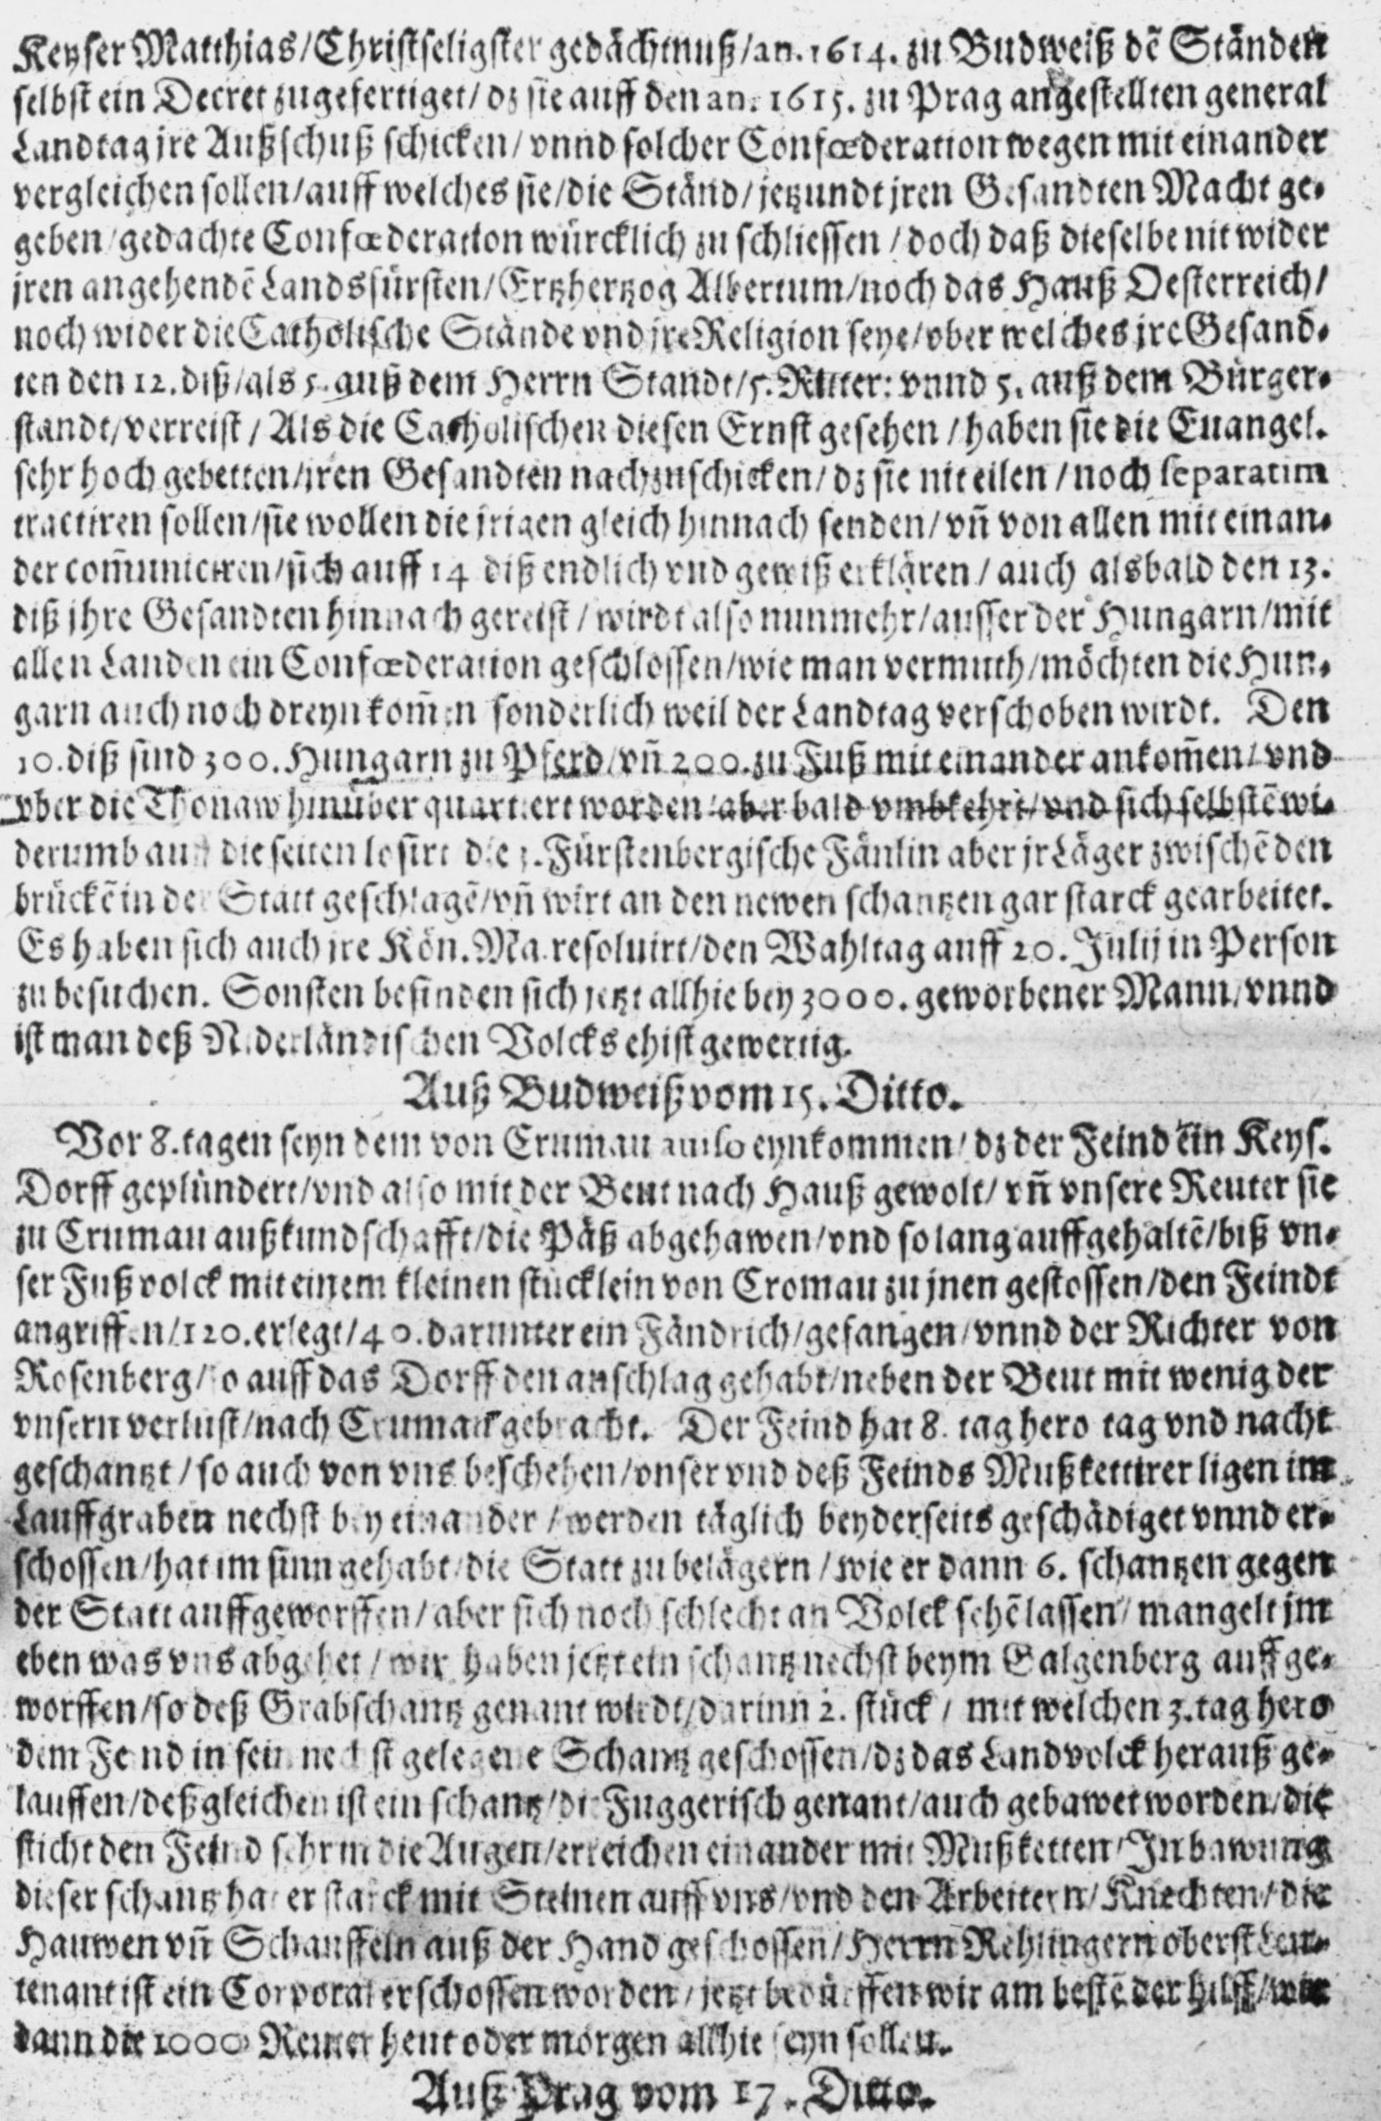 Keyser Matthias/Christseligster gedächtnuß/an. 1614. zu Budweiß dē Ständen
selbst ein Decret zugefertiget/dz sie auff den an. 1615. zu Prag angestellten general
Landtag jre Außschuß schicken/vnnd solcher Confœderation wegen mit einander
vergleichen sollen/auff welches sie/die Ständ/jetzundt jren Gesandten Macht ge-
geben/gedachte Confœderation würcklich zu schliessen/doch daß dieselbe nit wider
jren angehendē Landsfürsten/Ertzhertzog Albertum/noch das Hauß Oesterreich/
noch wider die Catholische Stände vnd jre Religion seye/vber welches jre Gesand-
ten den 12. diß/als 5. auß dem Herrn Standt/5. Ritter: vnnd 5. auß dem Bürger-
standt/verreist/Als die Catholischen diesen Ernst gesehen/haben sie die Euangel.
sehr hoch gebetten/jren Gesandten nachzuschicken/dz sie nit eilen/noch separatim
tractiren sollen/sie wollen die jrigen gleich hinnach senden/vn̄ von allen mit einan-
der com̄uniciren/sich auff 14 diß endlich vnd gewiß erklären/auch alsbald den 13.
diß jhre Gesandten hinnach gereist/wirdt also nunmehr/ausser der Hungarn/mit
allen Landen ein Confœderation geschlossen/wie man vermuth/möchten die Hun-
garn auch noch dreyn kom̄en sonderlich weil der Landtag verschoben wirdt. Den
10. diß sind 300. Hungarn zu Pferd/vn̄ 200. zu Fuß mit einander ankom̄en/vnd
vber die Thonaw hinüber quartiert worden/aber bald vmbkehrt/vnd sich selbstē wi-
derumb auff die seiten losirt die 3. Fürstenbergische Fänlin aber jr Läger zwischē den
brückē in der Statt geschlagē/vn̄ wirt an den newen schantzen gar starck gearbeitet.
Es haben sich auch jre Kön. Ma. resoluirt/den Wahltag auff 20. Julij in Person
zu besuchen. Sonsten befinden sich jetzt allhie bey 3000. geworbener Mann/vnnd
ist man deß Niderländischen Volcks ehist gewertig.
Auß Budweiß vom 15. Ditto.
Vor 8. tagen seyn dem von Crumau auiso eynkommen/dz der Feind ein Keys.
Dorff geplündert/vnd also mit der Beut nach Hauß gewolt/vn̄ vnsere Reuter sie
zu Crumau außkundschafft/die Päß abgehawen/vnd so lang auffgehaltē/biß vn-
ser Fußvolck mit einem kleinen stücklein von Cromau zu jnen gestossen/den Feindt
angriffen/120. erlegt/40. darunter ein Fändrich/gefangen/vnnd der Richter von
Rosenberg/so auff das Dorff den anschlag gehabt/neben der Beut mit wenig der
vnsern verlust/nach Crumau gebracht. Der Feind hat 8. tag hero tag vnd nacht
geschantzt/so auch von vns beschehen/vnser vnd deß Feinds Mußkettirer ligen im
Lauffgraben nechst bey einander/werden täglich beyderseits geschädiget vnnd er-
schossen/hat im sinn gehabt/die Statt zu belägern/wie er dann 6. schantzen gegen
der Statt auffgeworffen/aber sich noch schlecht an Volck sehē lassen/mangelt jm
eben was vns abgehet/wir haben jetzt ein schantz nechst beym Galgenberg auffge-
worffen/so deß Grabschantz genant wirdt/darinn 2. stück/mit welchen 3. tag hero
dem Feind in sein nechst gelegene Schantz geschossen/dz das Landvolck herauß ge-
lauffen/deßgleichen ist ein schantz/die Fuggerisch genant/auch gebawet worden/die
sticht den Feind sehr in die Augen/erreichen einander mit Mußketten/In bawung
dieser schantz hat er starck mit Steinen auff vns/vnd den Arbeitern/Knechten/die
Hauwen vn̄ Schauffeln auß der Hand geschossen/Herrn Rehlingern oberst Leu-
tenant ist ein Corporal erschossen worden/jetzt bedürffen wir am bestē der hilff/wie
dann die 1000 Reuter heut oder morgen allhie seyn sollen.
Auß Prag vom 17. Ditto.